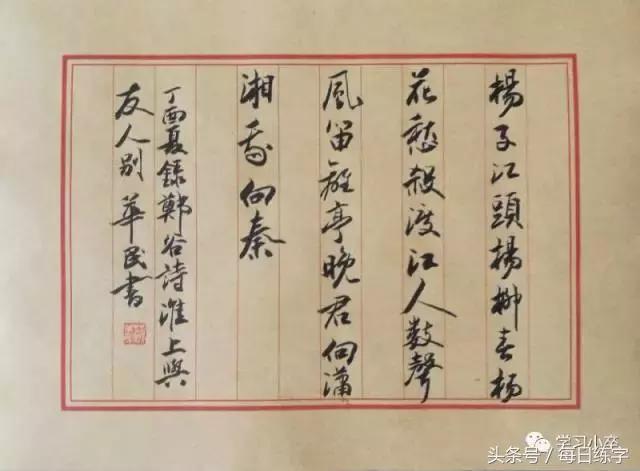 揚子江頭楊柳春楊
花愁殺渡江人數聲
風笛離亭晚君向瀟
湘我向秦
丁酉夏錄鄭谷詩淮上與
友人別 華民書
学习小卒
头条号 / 每日练字